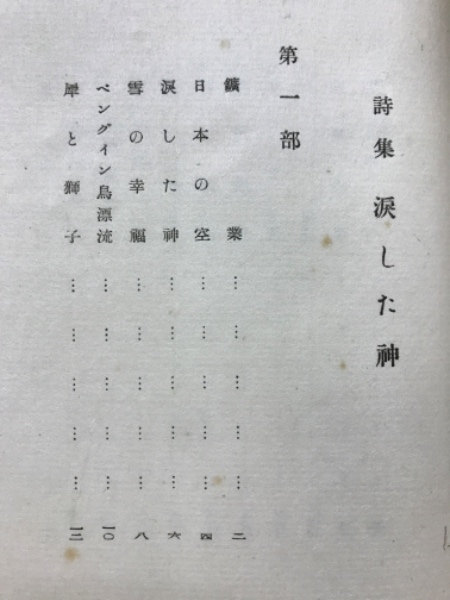 詩集 涙した神
第一部
鑛業………………二
日本の空………………四
涙した神………………六
雪の幸福………………八
ペングイン鳥漂流………………一〇
犀と獅子………………一三